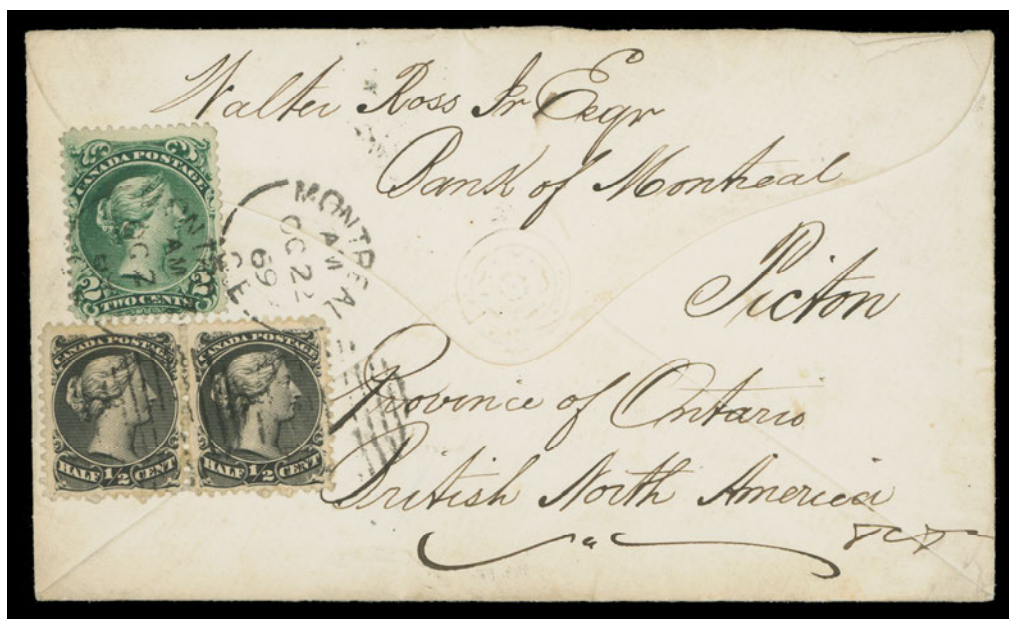 Walter Ross Jr Esqr
Bank of Montreal
Picton
Province of Ontario
British North America
CANADA POSTAGE
2 2
TWO CENTS
MONTREAL
AM
OC 22
69
C.E
CANADA POSTAGE
HALF 1/2 CENT
CANADA POSTAGE
HALF 1/2 CENT